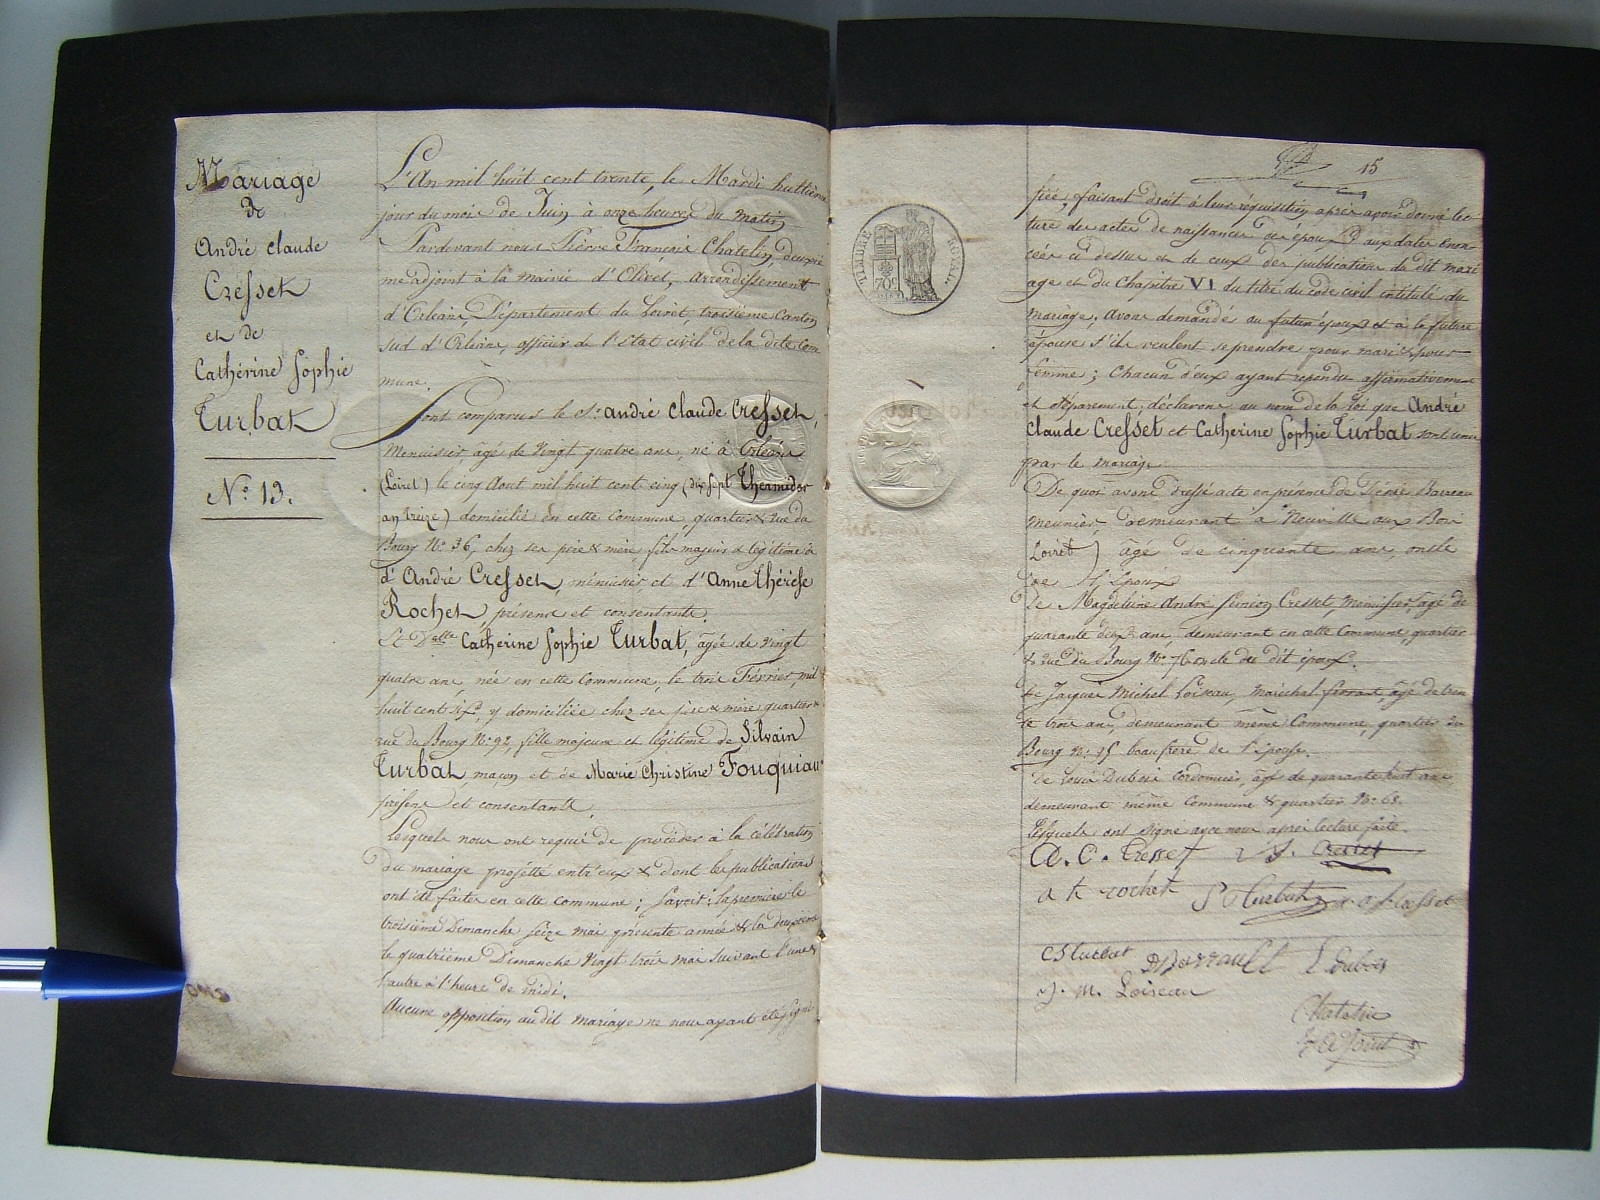 Mariage
de
André Claude
Cresset
et de
Catherine Sophie
Turbat
N.o 13.
L'An mil huit cent trente, le Mardi huitième
jour du mois de Juin à onze heures du matin
Pardevant nous Pierre François Chatelin, deuxiè
me adjoint à la mairie d'Olivet, arrondissement
d'Orléans, Département du Loiret, troisième Canton
sud d'Orléans, officier de l'Etat civil de la dite Com
mune.
Sont comparus le Sr. André Claude Cresset,
Menuisier âgé de Vingt quatre ans, né à Orléans
(Loiret) le cinq Aout mil huit cent cinq (dix sept Thermidor
an treize) domicilié en cette Commune, quartier & rue du
Bourg No. 36, chez ses père & mère fils majeur & légitime
d'André Cresset, menuisier et d'Anne thérèse
Rochet, présens et consentants.
Et Delle Catherine Sophie Turbat, âgée de Vingt
quatre ans, née en cette Commune, le trois Février, mil
huit cent six, y domiciliée chez ses père & mère quartier &
rue du Bourg No. 92, fille majeure et légitime de Silvain
Turbat, maçon et de Marie Christine Fouquiau
présens et consentants.
Lesquels nous ont requis de procéder à la célébration
du mariage projetté entr'eux & dont les publications
ont été faites en cette commune; Savoir: la première le
troisième Dimanche seize mai présente année & la deuxième
le quatrième Dimanche Vingt trois mai suivant l'une &
l'autre à l'heure de midi.
Aucune opposition au dit mariage ne nous ayant été signi
15
TIMBRE ROYAL
70c
fiée, faisant droit à leur réquisition après avoir donné lec
ture des actes de naissance des époux aux dates énon
cées ci dessus et de ceux des publications du dit mari
age et du Chapitre VI du titre du code civil intitulé du
mariage, avons demandé au futur époux et à la future
épouse s'ils veulent se prendre pour mari & pour
femme; Chacun d'eux ayant répondu affirmativement
et séparément, déclarons au nom de la loi que André
Claude Cresset et Catherine Sophie Turbat sont unis
par le mariage.
De quoi avons dressé acte en présence de Barreau
meunier, demeurant à Neuville aux Bois
Loiret) âgé de cinquante ans, oncle
de l'époux
De Magdeleine André Cresset, Menuisier, âgé de
quarante deux ans, demeurant en cette Commune, quartier
& rue du Bourg No. 76 oncle du dit époux.
De Jacques Michel Loiseau, maréchal ferrant, âgé de tren
te trois ans, demeurant même Commune, quartier du
Bourg No. 95 beaufrère de l'épouse.
De Louis Dubois Cordonnier, âgé de quarante huit ans
demeurant même Commune & quartier No. 68.
Lesquels ont signé avec nous après lecture faite.
A. C. Cresset Cresset
a t rochet S Turbat Cresset
C S turbat D Barrault L Dubois
J. M. Loiseau
Chatelin
Adjoint